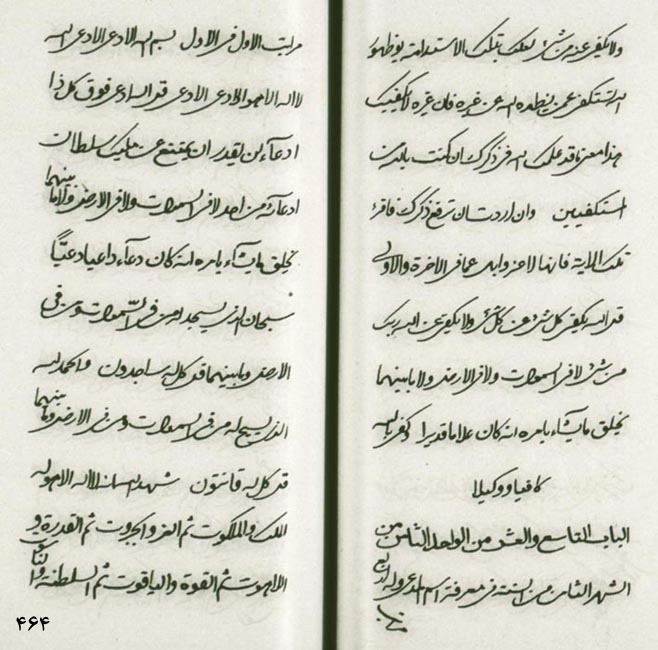 ولا يكفي عنه من شيء لعلك بتلك الاستدامة يوم ظهور
الله تستكفي عمن يظهره الله عن غيره فان غيره لا يكفيك
هذا معنى ما قد علمك الله في ذكرك ان كنت بالله من
المستكفيين وان اردت ان ترفع ذكرك فاقرء
تلك الاية فانها لاعز وابهى عما في الاخرة والاولى
قل الله يكفي كل شيء عن كل شيء ولا يكفي عن الله ربك
من شيء لا في السموات ولا في الارض ولا ما بينهما
يخلق ما يشاء بامره انه كان علاما قديرا وكفى بالله
كافيا ووكيلا
الباب التاسع والعشر من الواحد الثامن من
الشهر الثامن من السنة في معرفة اسم المدعي وله اربع
مراتب الاول في الاول بسم الله الادعى الادعى الله
لا اله الا هو الادعى الادعى قل الله ادعى فوق كل ذا
ادعاء لن يقدر ان يمتنع عن مليك سلطان
ادعائه من احد لا في السموات ولا في الارض ولا ما بينهما
يخلق ما يشاء بامره انه كان دعاء داعيا دعيا
سبحان الذي يسجد له من في السموات ومن في
الارض وما بينهما قل كل له ساجدون والحمد لله
الذي يسبح له من في السموات ومن في الارض وما بينهما
قل كل له قانتون شهد الله انه لا اله الا هو له
الملك والملكوت ثم العز والجبروت ثم القدرة و
اللاهوت ثم القوة والياقوت ثم السلطنة و
۴۶۴